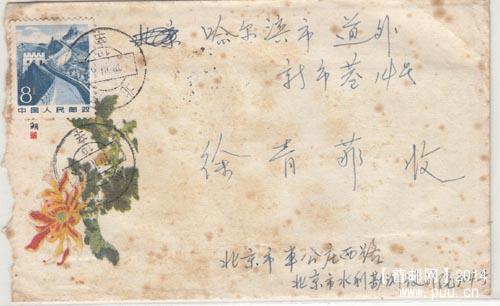 哈尔滨市 道外
新市巷14号
徐青菲 收
8
中国人民邮政
北京市车公庄西路
北京市水利勘
【首邮网】2014
www.puu.cn